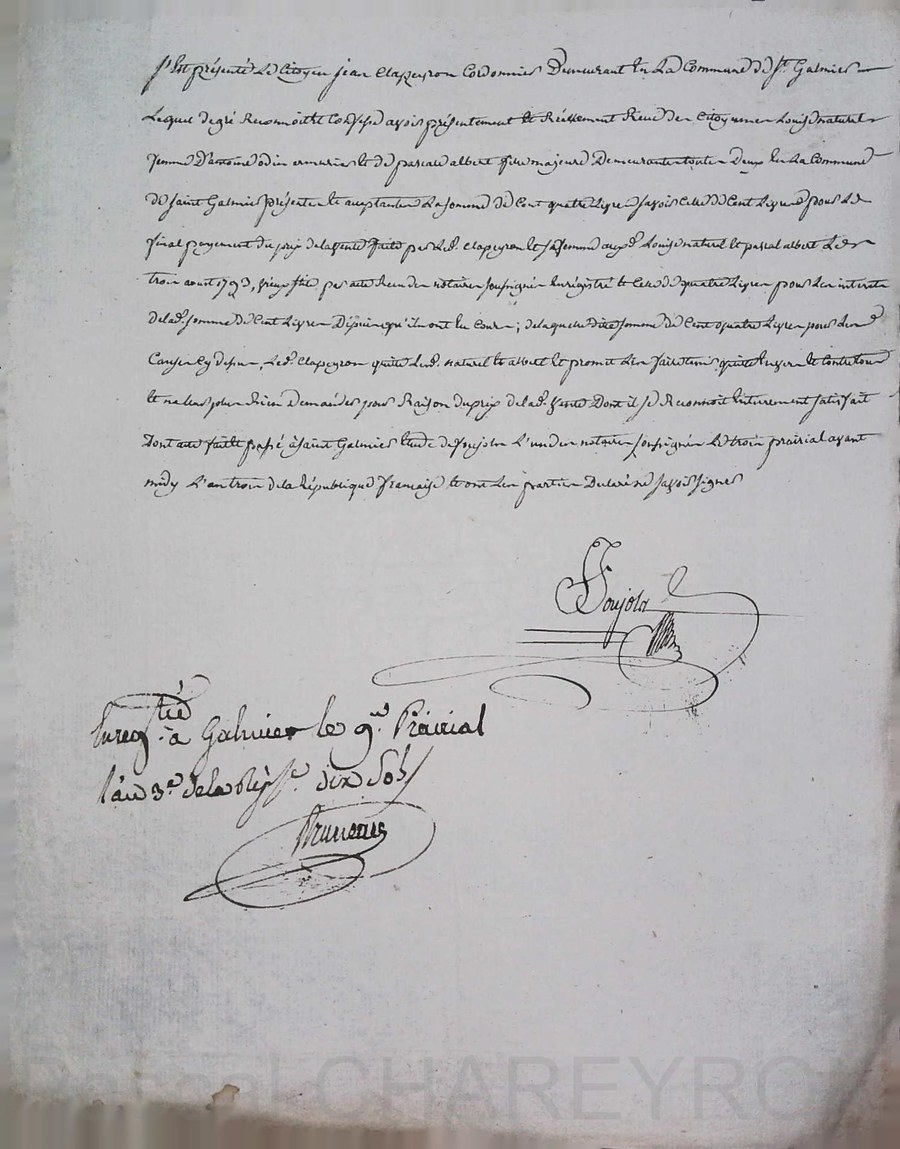 s'est présenté Le Citoyen jean Clapeyron Cordonnier Demeurant En La Commune de St. Galmier
Lequel de gré Reconnoit et Confesse avoir présentement et Réellement Receu des Citoyennes Louise naturel
femme D'antoine odin et de pascale albert fille majeure Demeurantes toutes Deux En La Commune
de Saint Galmier présentes et acceptantes La somme de Cent quatre Livres savoir Celle de Cent Livres pour Le
final payement du prix de la vente faitte par Led. Clapeyron et sa femme auxd. Louise naturel et pascal albert Le
trois aout 1793, vieux stile, par acte Receu des notaires soussignés Enregistré et Celle de quatre Livres pour Les interets
de lad. somme de Cent Livres Depuis qu'ils ont Eu Cours; de laquelle dite somme de Cent quatre Livres pour Les
Causes Cy dessus, Led. Clapeyron quitte Lesd. naturel et albert et promet Les faire tenir quittes Envers et Contre tous
et ne Leur plus Rien Demander pour Raison du prix de lad. vente Dont il se Reconnoit Entierement satisfait
Dont acte fait et passé à saint Galmier Etude de Soujola L'un des notaires soussignés Le trois prairial avant
midy L'an trois de la République francaise et ont Les parties Déclaré ne savoir signer
Soujola
Enreg.tré à Galmier le 9 Prairial
l'an 3e. de la Rép. fse. dix sols
Bruneau
Pascal CHAREYRON